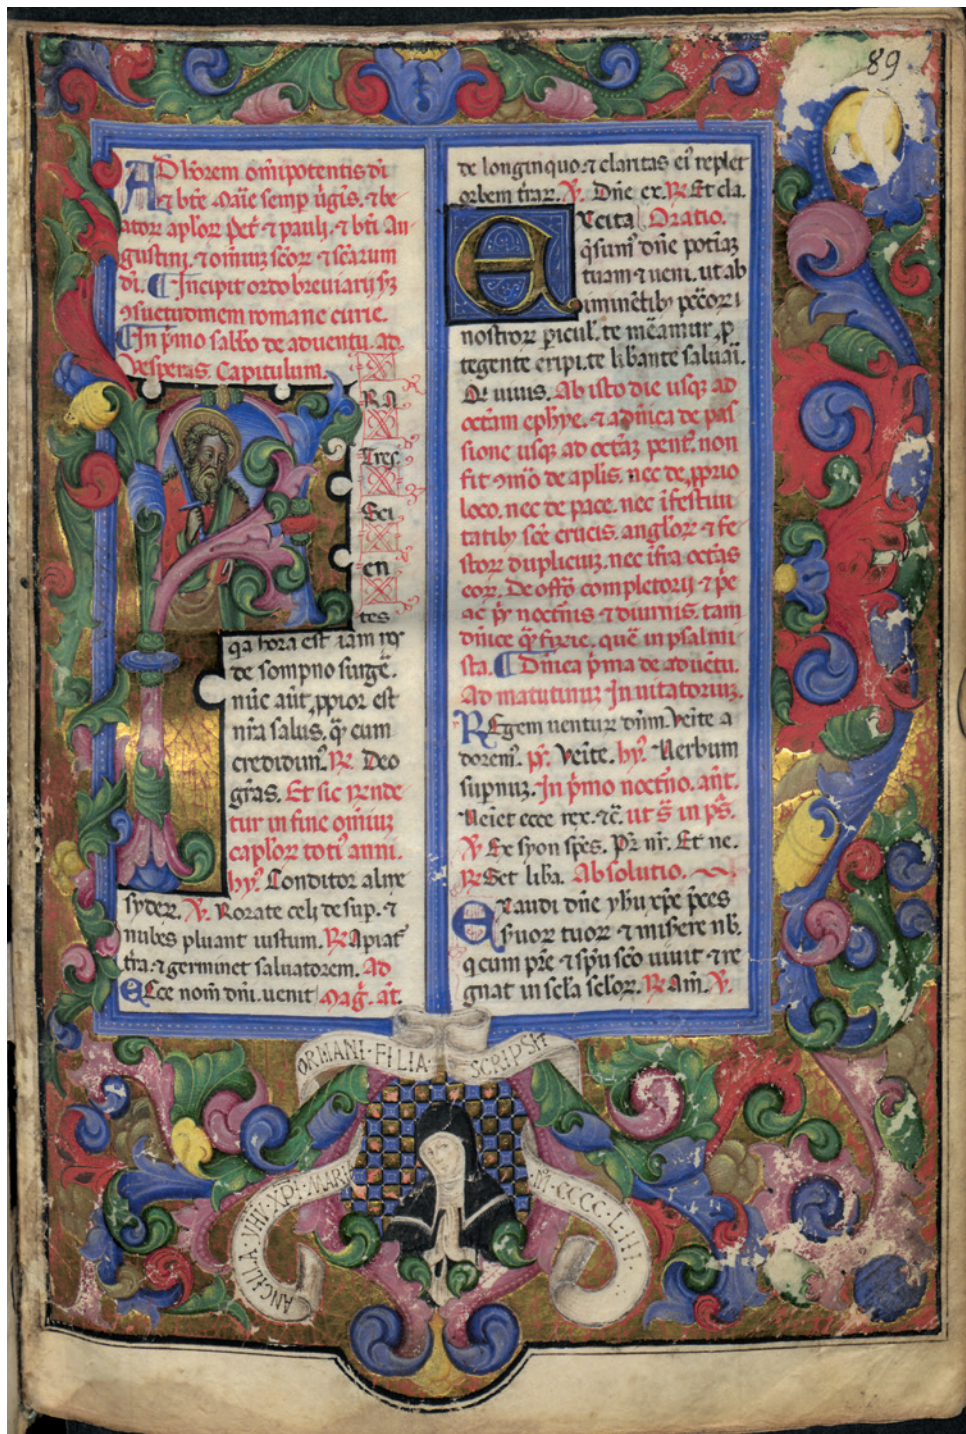 89
AD hõrem om̃ipotentis di
& bt̃e Maĩe semp̱ ũgĩs. ⁊ be
atoꝝ aplõꝝ Pet̃ ⁊ pauli. ⁊ bt̃i Au
gustini. ⁊ oĩmuꝫ scõꝝ ⁊ scãrum
di. Incipit ordo breuiarij s̃ꝫ
ꝯsuetudinem romane curie.
In p̃mo sabb̃o de aduentu. ad
vesperas. Capitulum.
FRA
tres.
Sci
en
tes
qa hora est iam nos
de sompno surgẽ.
nũc aũt ꝓpior est
nr̃a salus. q̃ cum
credidim̃. ℟ Deo
gr̃as. Et sic rende
tur in fine oĩmuꝫ
capl̃oꝝ toti anni.
hyꝰ Conditor alme
syderꝝ. ℣. Rorate celi desup. ⁊
nubes pluant iustum. ℟ Apiat̃
t̃ra. ⁊ germinet saluatorem. Ad
ECce nom̃ dñi. uenit Mag̃. añ.
de longinquo. ⁊ claritas eiꝰ replet
orbem t̃rarꝝ. ℣. Dñe ex. ℟ Et cla.
EXcita Oratio.
q̃sumꝰ dñe potñaꝫ
tuam ⁊ ueni. ut ab
imminẽtibꝫ pcc̃oꝝ
nostroꝝ p̱icul̃. te m̃eamur ꝓ
tegente eripi. te lib̃ante saluari.
Qi uiuis. Ab isto die usqꝫ ad
octãm ephye. ⁊ a dñica de pas
sione usqꝫ ad octãꝫ pent̃. non
fit ꝯm̃o de apl̃is. nec de ꝓprio
loco. nec de pace. nec ĩ festiui
tatibꝫ sc̃e crucis. angl̃oꝝ ⁊ fe
stoꝝ dupliciuꝫ. nec ĩfra octãs
eoꝝ. De offõ completorij ⁊ p̃e
ac p̃ꝫ nocturnis ⁊ diurnis. tam
dñice q̃ ferie. quẽ in psalmi
sta. Dñica p̃ma de aduẽtu.
Ad matutinuꝫ Inuitatoriuꝫ.
REgem uenturꝫ dñm. Veĩte a
doremꝰ. p̃s. Veĩte. hyꝰ. Uerbum
sup̱nuꝫ. In p̃mo noct̃no. añt.
Ueiet ecce rex. ⁊c̃. ut s̃ in ps̃.
℣ Ex syon sp̃es. Pr̃ nr̃. Et ne.
℟ Set lib̃a. Absolutio.
EXaudi dñe yhu xp̃e p̃ces
s̃uoꝝ tuoꝝ ⁊ misere nb̃.
q cum p̃re ⁊ sp̃u sc̃o uiuit ⁊ re
gnat in sc̃la scl̃oꝝ. ℟ Am̃. ℣.
ANCILLA · YHU · XPI · MARI
ORMANI · FILIA · SCRIPSIT
M · CCCC · L · III ·